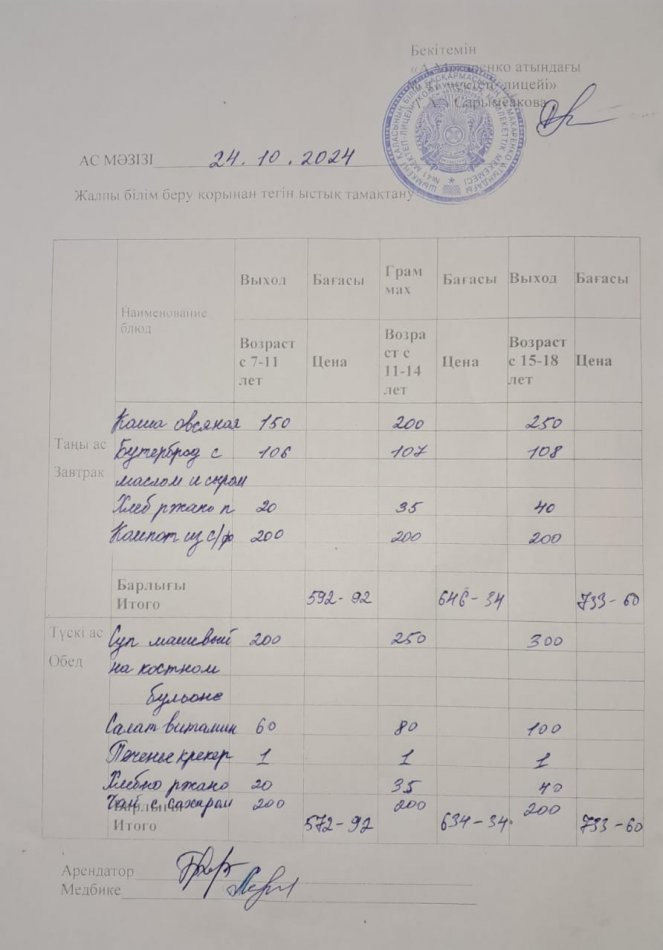 Бекітемін
«А.Макаренко атындағы
мектеп-лицейі»
Сарымбакова
АС МӘЗІЗІ 24.10.2024
Жалпы білім беру қорынан тегін ыстық тамақтану
Наименование блюд Выход Бағасы Грам мах Бағасы Выход Бағасы
Возраст с 7-11 лет Цена Возра ст с 11-14 лет Цена Возраст с 15-18 лет Цена
Таңы ас
Завтрак
Каша овсяная 150 200 250
Бутерброд с 106 107 108
маслом и сыром
Хлеб ржано п 20 35 40
Компот из с/ф 200 200 200
Барлығы
Итого 592-92 646-34 733-60
Түскі ас
Обед
Суп машевый 200 250 300
на костном
бульоне
Салат витамин 60 80 100
Печенье крекер 1 1 1
Хлебно ржано 20 35 40
Чай с сахаром 200 200 200
Барлығы
Итого 572-92 634-34 733-60
Арендатор
Медбике